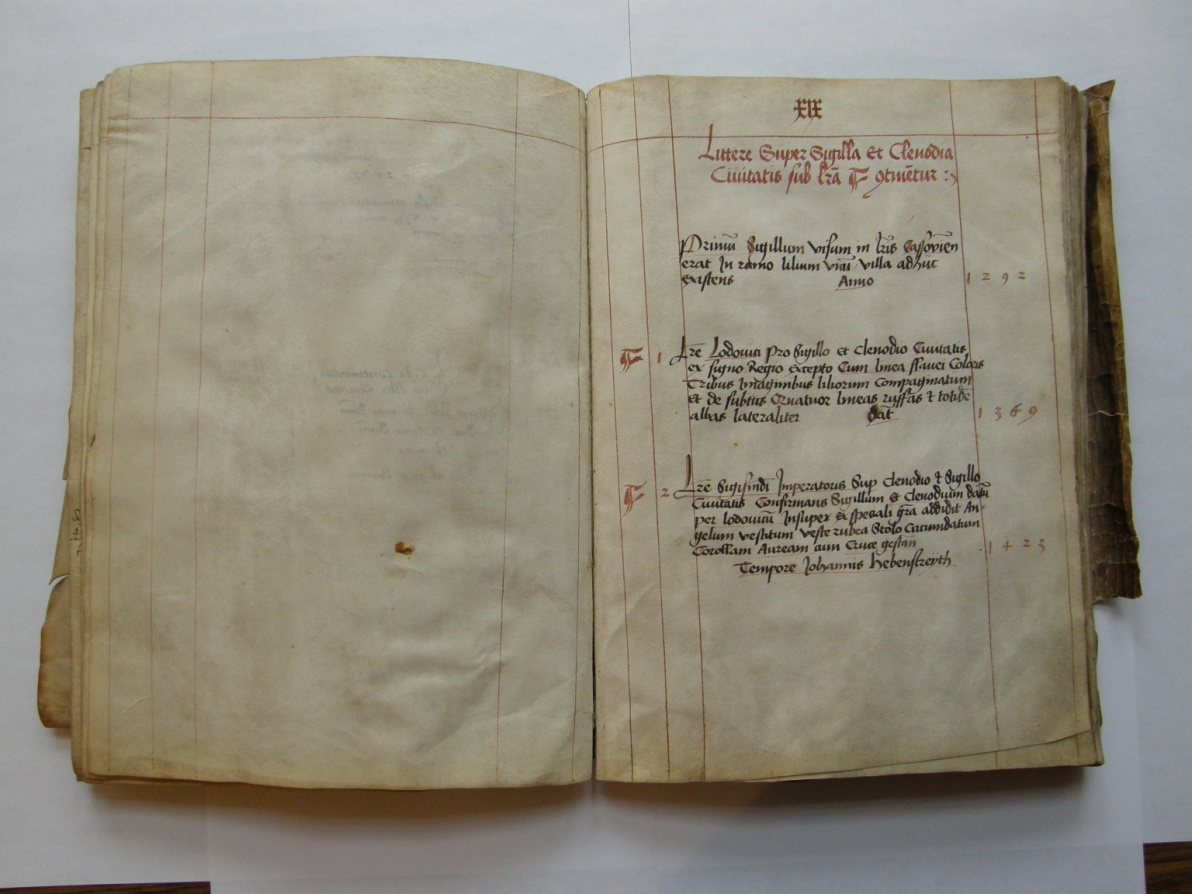 XIX
Littere Super Sigilla Et Clenodia
Civitatis sub lrā otinētur :
Primū Sigillum visum in lris Cassovien
erat In ramo lilium villa adhuc
existens Anno 1292
1 Lrē Lodovici Pro Sigillo et Clenodio Civitatis
ex signo Regio Excepto Cum linea flavei Coloris
Tribus Imaginibus liliorum Compaginatum
Et de subtus Quatuor lineas ruffas et totidē
albas lateraliter Dat 1369
2 Lrē Sigismdi Imperatoris Sup Clenodio et Sigillo
Civitatis Confirmans Sigillum et Clenodium datū
per lodovicū Insuper ex speciali grā addidit An-
gelum vestitum veste rubea Stolo Circumdatum
Corollam Auream cum Cruce gestan 1423
Tempore Johannis hebenstreyth